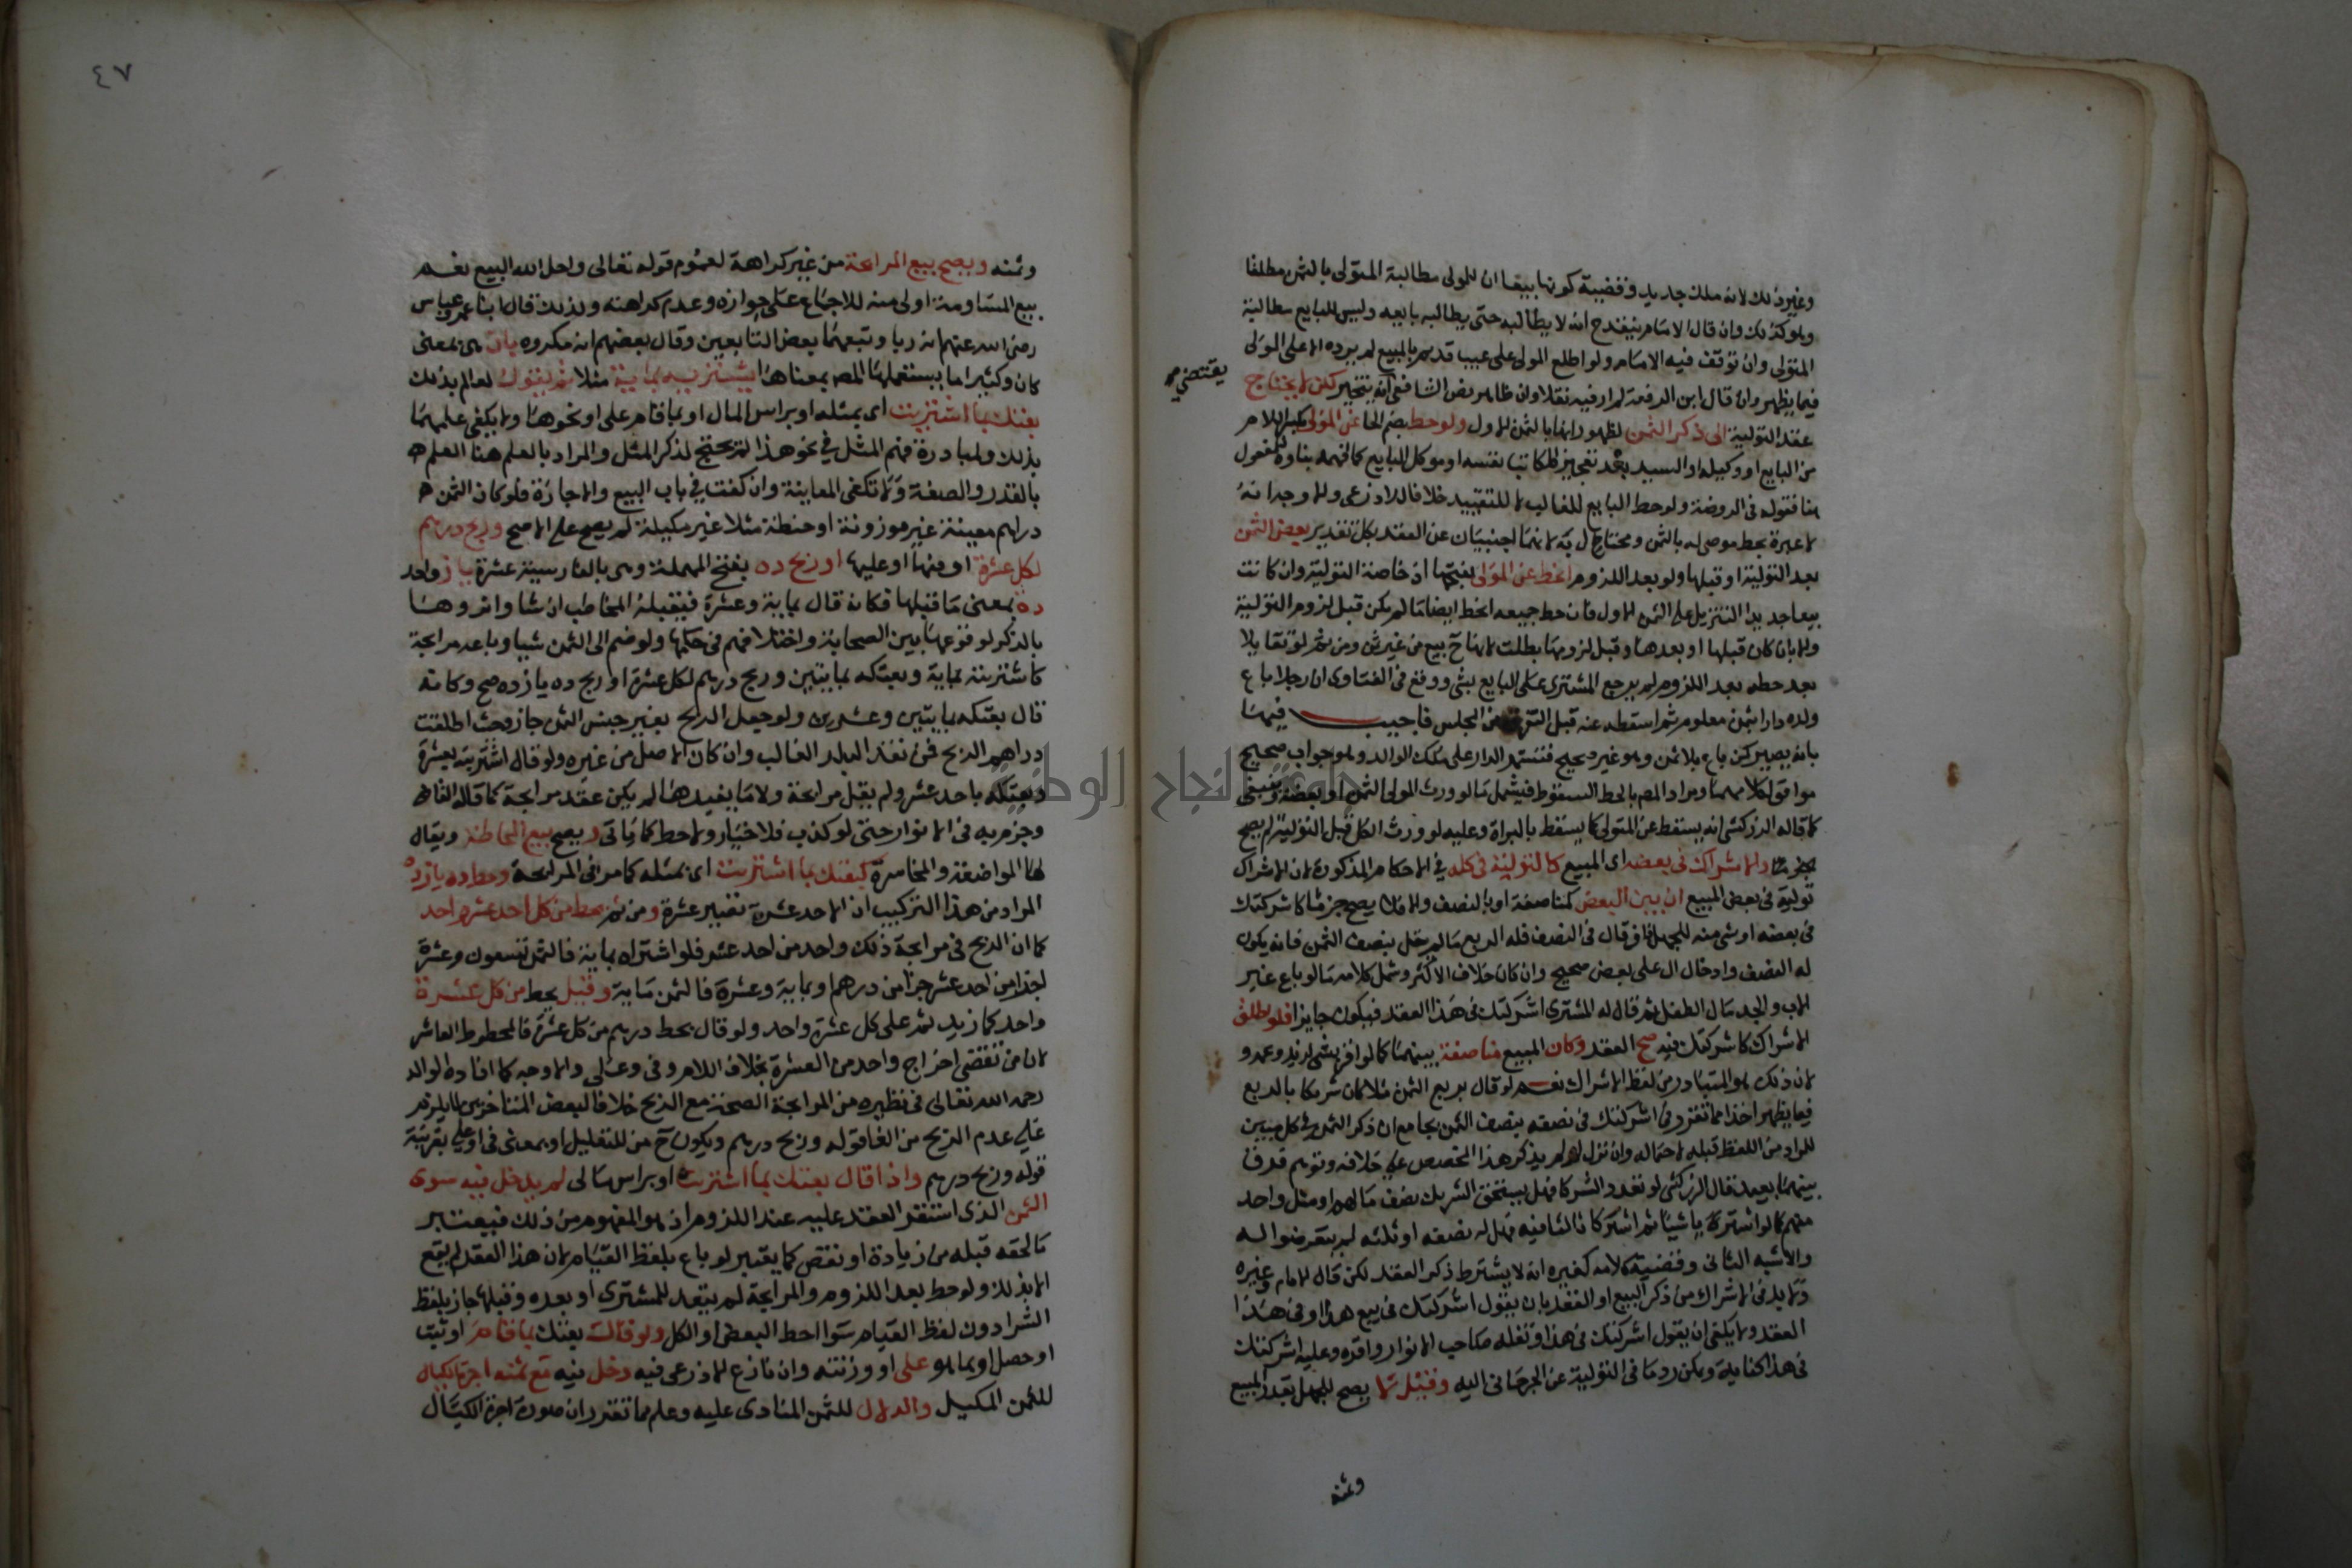 وغير ذلك لانه ملك جديد وقضية كونها بيعا ان للمولى مطالبة المتولى بالثمن مطلقا
وهو كذلك وان قال الامام ينقدح انه لا يطالبه حتى يطالبه بايعه وليس للبايع مطالبة
المتولى وان توقف فيه الامام ولو اطلع المولى على عيب قديم بالمبيع لم يرده الا على المولى
فيما يظهر وان قال ابن الرفعة لم ار فيه نقلا وان ظاهر نص الشافعى انه يتخير لكن لا يحتاج
يقتضي
عقد التولية الى ذكر الثمن لظهور انها بالثمن الاول ولو حط بضم الحا عن المولى بكسر اللام
من البايع او وكيله او السيد بعد تعجيز المكاتب نفسه او موكل البايع كما افهمه بناوه للمفعول
هنا فقوله فى الروضة ولو حط البايع للغالب لا للتقييد خلافا للاذرعى والاوجه انه
لا عبرة بحط موصى له بالثمن ومحتال به لانهما اجنبيان عن العقد بكل تقدير بعض الثمن
بعد التولية او قبلها ولو بعد اللزوم انحط عن المولى بفتحها اذ خاصة التولية وان كانت
بيعا جديدا التنزيل على الثمن الاول فان حط جميعه انحط ايضا ما لم يكن قبل لزوم التولية
والا بان كان قبلها او بعدها وقبل لزومها بطلت لانها ح بيع من غير ثمن ومن ثم لو تقايلا
بعد حطه بعد اللزوم لم يرجع المشترى على البايع بشى ووقع فى الفتاوى ان رجلا باع
ولده دارا بثمن معلوم ثم اسقطه عنه قبل التفرق من المجلس فاجيب فيهما
بانه يصير كمن باع بلا ثمن وهو غير صحيح فتستمر الدار على ملك الوالد وهو جواب صحيح
موافق لكلامهما ومراد المص بالحط السقوط فيشمل ما لو ورث المولى الثمن او بعضه وينبغى
كما قاله الزركشى انه يسقط عن المتولى كما يسقط بالبراة وعليه لو ورث الكل قبل التولية لم يصح
جزما والاشراك فى بعضه اى المبيع كالتولية فى كله فى الاحكام المذكورة لان الاشراك
تولية فى بعض المبيع ان بين البعض كمناصفة او بالنصف والا فلا يصح جزما كاشركتك
فى بعضه او شى منه للجهل فان قال فى النصف فله الربع ما لم يقل بنصف الثمن فانه يكون
له النصف وادخال ال على بعض صحيح وان كان خلاف الاكثر وشمل كلامه ما لو باع غير
الاب والجد مال الطفل ثم قال له المشترى اشركتك فى هذا العقد فيكون جايزا فلو اطلق
الاشراك كاشركتك فيه صح العقد وكان المبيع مناصفة بينهما كما لو اقر بشى لزيد وعمرو
لان ذلك هو المتبادر من لفظ الاشراك نعم لو قال بربع الثمن مثلا كان شريكا بالربع
فيما يظهر اخذا مما تقرر فى اشركتك فى نصفه بنصف الثمن بجامع ان ذكر الثمن فى كل مبين
للمراد من اللفظ قبله لاحتماله وان نزل لو لم يذكر هذا المخصص على خلافه وتوهم فرق
بينهما بعيد قال الزركشى لو تعدد الشركا فهل يستحق الشريك نصف مالهم او مثل واحد
منهم كما لو اشتريا شيئا ثم اشركا ثالثا فيه فهل له نصفه او ثلثه لم يتعرضوا له
والاشبه الثانى وقضية كلامه كغيره انه لا يشترط ذكر العقد لكن قال الامام وغيره
ولا بد فى الاشراك من ذكر البيع او العقد بان يقول اشركتك فى بيع هذا او فى هذا
العقد ولا يكفى ان يقول اشركتك فى هذا ونقله صاحب الانوار واقره وعليه اشركتك
فى هذا كناية ويمكن رد ما فى التولية عن الجرجانى اليه وقيل لا يصح للجهل بقدر المبيع
وثمنه
٤٧
وثمنه ويصح بيع المرابحة من غير كراهة لعموم قوله تعالى واحل الله البيع نعم
بيع المساومة اولى منه للاجماع على جوازه وعدم كراهته ولذلك قال ابنا عمر وعباس
رضى الله عنهم انه ربا وتبعهما بعض التابعين وقال بعضهم انه مكروه بان هى بمعنى
كان وكثيرا ما يستعملها المص بمعناها يشتريه بماية مثلا ثم يقول لعالم بذلك
بعتك بما اشتريت اى بمثله او براس المال او بما قام على او نحوها ولا يكفى علمهما
بذلك ولمبادرة فهم المثل فى نحو هذا لم يحتج لذكر المثل والمراد بالعلم هنا العلم
بالقدر والصفة ولا تكفى المعاينة وان كفت فى باب البيع والاجارة فلو كان الثمن
دراهم معينة غير موزونة او حنطة مثلا غير مكيلة لم يصح على الاصح وربح درهم
لكل عشرة او فيها او عليها او ربح ده بفتح المهملة وهى بالفارسية عشرة ياز واحد
ده بمعنى ما قبلها فكانه قال بماية وعشرة فيقبله المخاطب ان شا واثروهما
بالذكر لوقوعهما بين الصحابة واختلافهم فى حكمها ولو ضم الى الثمن شيا وباعه مرابحة
كاشتريته بماية وبعتكه بمايتين وربح درهم لكل عشرة او ربح ده يازده صح وكانه
قال بعتكه بمايتين وعشرين ولو جعل الربح بغير جنس الثمن جاز وحيث اطلقت
دراهم الربح فمن نقد البلد الغالب وان كان الاصل من غيره ولو قال اشتريته بعشرة
وبعتكه باحد عشر ولم يقل مرابحة ولا ما يفيدها لم يكن عقد مرابحة كما قاله القاضى
وجزم به فى الانوار حتى لو كذب فلا خيار ولا حط كما ياتى ويصح بيع المحاطة ويقال
لها المواضعة والمخاسرة كبعتك بما اشتريت اى بمثله كما مر فى المرابحة وحط ده يازده
المراد من هذا التركيب ان الاحد عشر تصير عشرة ومن ثم يحط من كل احد عشر واحد
كما ان الربح فى مرابحة ذلك واحد من احد عشر فلو اشتراه بماية فالثمن تسعون وعشرة
اجزا من احد عشر جزا من درهم او بماية وعشرة فالثمن ماية وقيل يحط من كل عشرة
واحد كما زيد ثم على كل عشرة واحد ولو قال بحط درهم من كل عشرة فالمحطوط العاشر
لان من تقتضى اخراج واحد من العشرة بخلاف اللام وفى وعلى والاوجه كما افاده الوالد
رحمه الله تعالى فى نظيره من المرابحة الصحة مع الربح خلافا لبعض المتاخرين
على عدم الربح من الغا قوله وربح درهم ويكون ح من للتعليل او بمعنى فى او على بقرينة
قوله وربح درهم واذا قال بعتك بما اشتريت او براس مالى لم يدخل فيه سوى
الثمن الذى استقر العقد عليه عند اللزوم اذ هو المفهوم من ذلك فيعتبر
ما لحقه قبله من زيادة او نقص كما يعتبر لو باع بلفظ القيام لان هذا العقد لم يقع
الا بذلك ولو حط بعد اللزوم والمرابحة لم يتعد للمشترى او بعده وقبلها جاز بلفظ
الشرا دون لفظ القيام سوا احط البعض او الكل ولو قال بعتك بما قام او ثبت
او حصل او بما هو على او وزنته وان نازع الاذرعى فيه دخل فيه مع ثمنه اجرة الكيال
للثمن المكيل والدلال للثمن المنادى عليه وعلم مما تقرر ان صورة اجرة الكيال
جامعة النجاح الوطنية